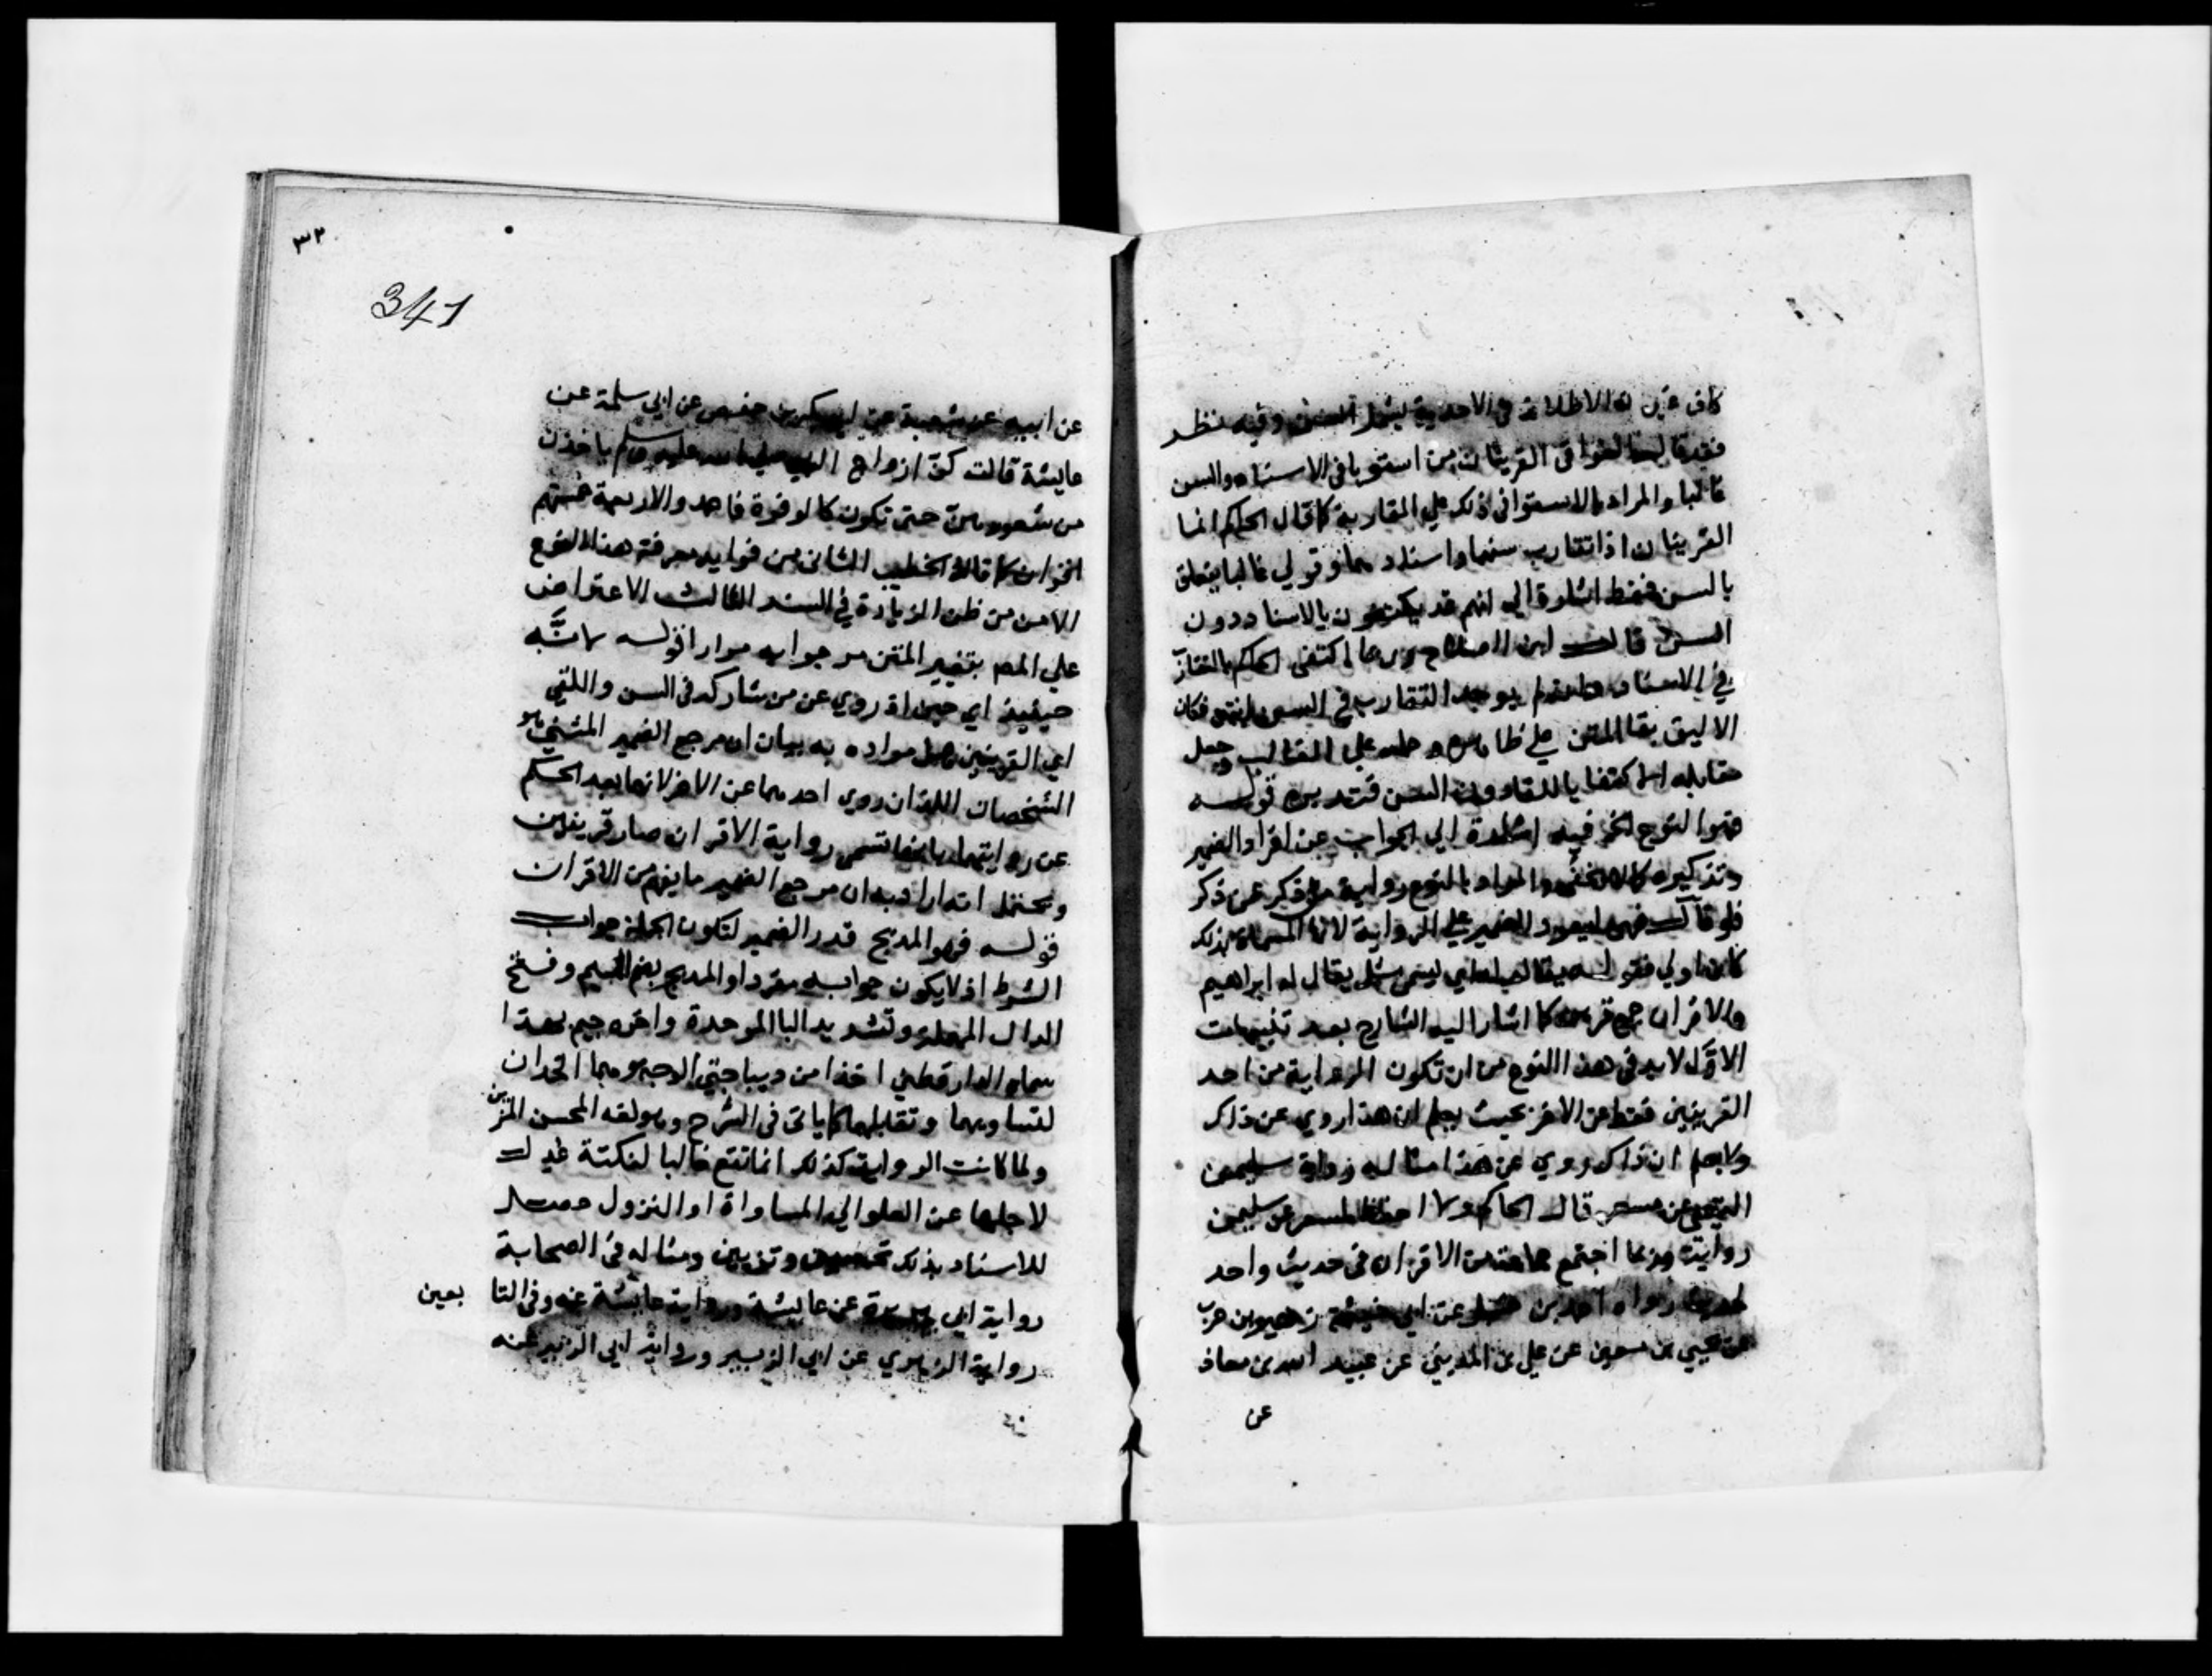 كان عين له الاطلاق في الاحدية ليشمل السن وفيه نظر
فقد قال العراقي القرينان من استويا في الاسناد والسن
غالبا والمراد بالاستوا في ذلك علي المقاربة كما قال الحاكم انما
القرينان اذا تقارب سنهما واسنادهما وقولي غالبا يتعلق
بالسن فقط اشارة الي انهم قد يكتفون بالاسناد دون
السن قال ابن الصلاح وربما اكتفى الحاكم بالتقارب
في الاسناد وان لم يوجد التقارب في السن انتهى فكان
الاليق بقا المتن علي ظاهره وحمله علي الغالب وجعل
مقابله الاكتفا باللقا دون السن فتدبره قوله
فهو النوع الخ فيه اشارة الي الجواب عن افراد الضمير
وتذكيره والمراد بالنوع رواية من ذكر عن ذكر
فلو قال فهي ليعود الضمير علي الرواية لانها المسماة بذلك
كان اولي فقوله يقال له اي ليس مثل يقال له ابراهيم
والاقران جمع قرين كما اشار اليه الشارح بعد تنبيهات
الاول لا بد في هذا النوع من ان تكون الرواية من احد
القرينين فقط عن الاخر بحيث يعلم ان هذا روي عن ذاك
ولا يعلم ان ذاك روي عن هذا مثاله رواية سليمن
التيمي عن مسعر قال الحاكم ولا احفظ لمسعر عن سليمن
رواية وربما اجتمع جماعة من الاقران في حديث واحد
كحديث رواه احمد بن حنبل عن ابي خيثمة زهير بن حرب
عن يحيي بن معين عن علي بن المديني عن عبيد الله بن معاذ
عن
٣٢
341
عن ابيه عن شعبة عن ابي بكر بن حفص عن ابي سلمة عن
عايشة قالت كن ازواج النبي صلي الله عليه وسلم ياخذن
من شعورهن حتى تكون كالوفرة فاحمد والاربعة خمستهم
اقران كما قاله الخطيب الثاني من فوايد معرفة هذا النوع
الامن من ظن الزيادة في السند الثالث الاعتراض
علي المصـ بتغيير المتن مر جوابه مرارا قوله لانه
حينيذ اي حين اذ روي عن من شاركه في السن واللقي
اي القرينين مراده به بيان ان مرجع الضمير المثني هو
الشخصان اللذان روي احدهما عن الاخر لانهما بعد الحكم
عن روايتهما بانها تسمى رواية الاقران صار قرينين
ويحتمل انه اراد به ان مرجع الضمير ما يفهم من الاقران
قوله فهو المدبج قدر الضمير لتكون الجملة جواب
الشرط اذ لا يكون جوابه مفردا والمدبج بضم الميم وفتح
الدال المهملة وتشديد البا الموحدة واخره جيم بهذا
سماه الدارقطني اخذا من ديباجتي الوجه وهما الخدان
لتساويهما وتقابلهما كما ياتي في الشرح وهو لغة المحسن المزين
ولما كانت الرواية كذلك انما تقع غالبا لنكتة عدل
لاجلها عن العلو الي المساواة او النزول حصل
للاسناد بذلك تحسين وتزيين ومثاله في الصحابة
رواية ابي هريرة عن عايشة ورواية عايشة عنه وفي التا بعين
رواية الزهري عن ابي الزبير ورواية ابي الزبير عنه